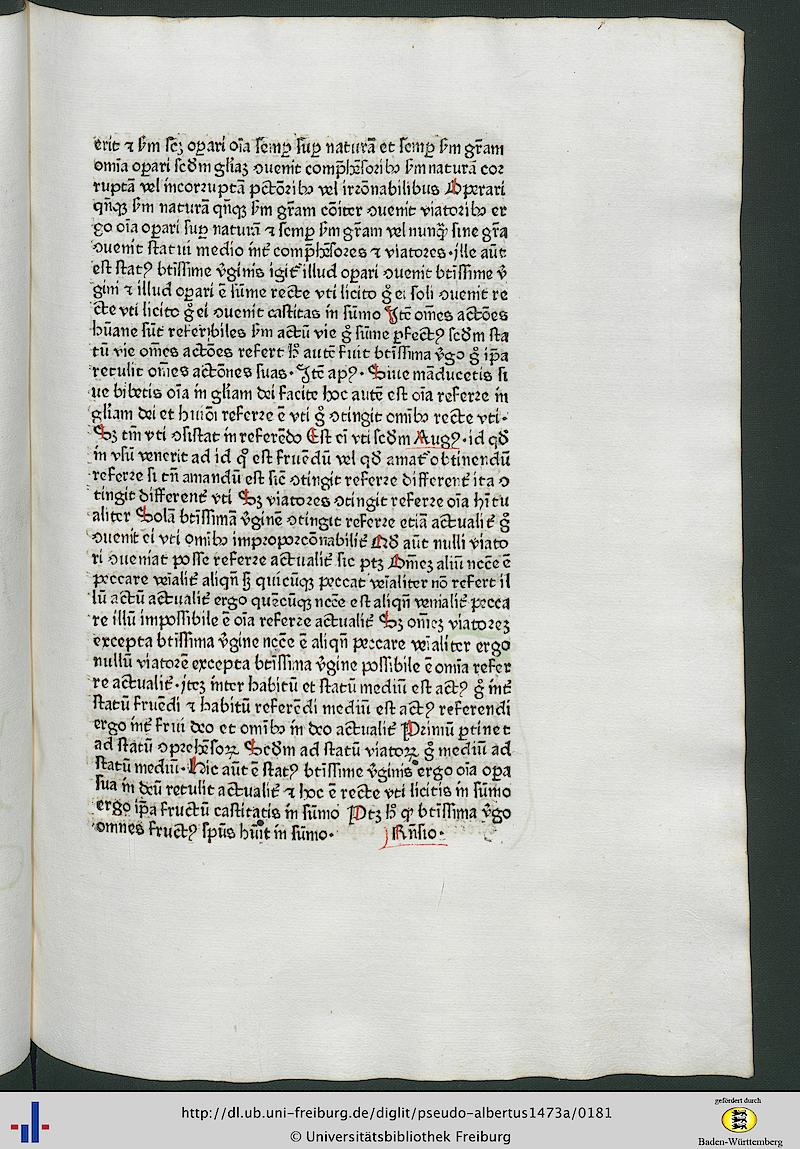 erit ⁊ ẜm ſcꝫ oꝑari oīa ſemꝑ ſuꝑ naturā et ſemꝑ ẜm gr̄am
omīa oꝑari ſcd̄m gliaꝫ ꝯuenit comp̄hēſoribꝰ ẜm naturā cor
ruptā vel incorruptā pctōribꝰ vel irrōnabilibus Oꝑerari
qn̄qꝫ ẜm naturā qn̄qꝫ ẜm gr̄am cōiter ꝯuenit viatoribꝰ er
go oīa oꝑari ſuꝑ naturā ⁊ ſemꝑ ẜm gr̄am vel nunqͣ ſine gr̄a
ꝯuenit ſtatui medio int̄ comp̄hēſores ⁊ viatores·ille aūt
est ſtatꝰ btīſſime v̄ginis igit̄ illud oꝑari ꝯuenit btīſſime v̄
gini ⁊ illud oꝑari ē ſūme recte vti licito g̊ ei ſoli ꝯuenit re
cte vti licito g̊ ei ꝯuenit caſtitas in ſūmo Itē om̄es actōes
hūane ſūt referibiles ẜm actū vie g̊ ſūme ꝑfectꝰ ſcd̄m ſta
tū vie om̄es actōes refert h̊ autē fuit btīſſima v̄go g̊ ip̄a
retulit om̄es actōnes ſuas· Itē apꝰ· Siue māducetis ſi
ue bibetis oīa in gliam dei facite hoc autē est oīa referre in
gliam dei et huiōi referre ē vti g̊ ꝯtingit omībꝰ recte vti·
Sꝫ tm̄ vti ꝯſiſtat in referēdo Eſt ei vti ſcd̄m Augꝰ·id qd̄
in vſū venerit ad id qͦ est fruēdū vel qd̄ amat̄ obtinendū
referre ſi tn̄ amandū est ſic̄ ꝯtingit referre different̄ ita ꝯ
tingit different̄ vti Sꝫ viatores ꝯtingit referre oīa hītu
aliter Solā btīſſimā v̄ginē ꝯtingit referre etiā actualit̄ g̊
ꝯuenit ei vti omībꝰ improporcōnabilit̄ Qd̄ aūt nulli viato
ri ꝯueniat poſſe referre actualit̄ ſic ptꝫ Om̄eꝫ aliū nccē ē
peccare veīalit̄ aliqn̄ ſꝫ quicūqꝫ peccat veīaliter nō refert il
lū actū actualit̄ ergo quēcūqꝫ nccē est aliqn̄ venialit̄ pecca
re illū impoſſibile ē oīa referre actualit̄ Sꝫ om̄eꝫ viatoreꝫ
excepta btīſſima v̄gine nccē ē aliqn̄ peccare veīaliter ergo
nullū viatorē excepta btīſſima v̄gine poſſibile ē omīa refer
re actualit̄·iteꝫ inter habitū et ſtatū mediū est actꝰ g̊ int̄
ſtatū fruēdi ⁊ habitū referēdi mediū est actꝰ referendi
ergo int̄ frui deo et omībꝰ in deo actualit̄ Primū ꝑtinet
ad ſtatū ꝯprehēſoꝝ Scd̄m ad ſtatū viatoꝝ g̊ mediū ad
ſtatū mediū· Hic aūt ē ſtatꝰ btīſſime v̄ginis ergo oīa oꝑa
ſua in deū retulit actualit̄ ⁊ hoc ē recte vti licitis in ſūmo
ergo ip̄a fructū caſtitatis in ſūmo Ptꝫ h̊ ꝙ btīſſima v̄go
omnes fructꝰ ſpūs huīt in ſūmo· Rn̄ſio·
http://dl.ub.uni-freiburg.de/diglit/pseudo-albertus1473a/0181
© Universitätsbibliothek Freiburg
gefördert durch
Baden-Württemberg